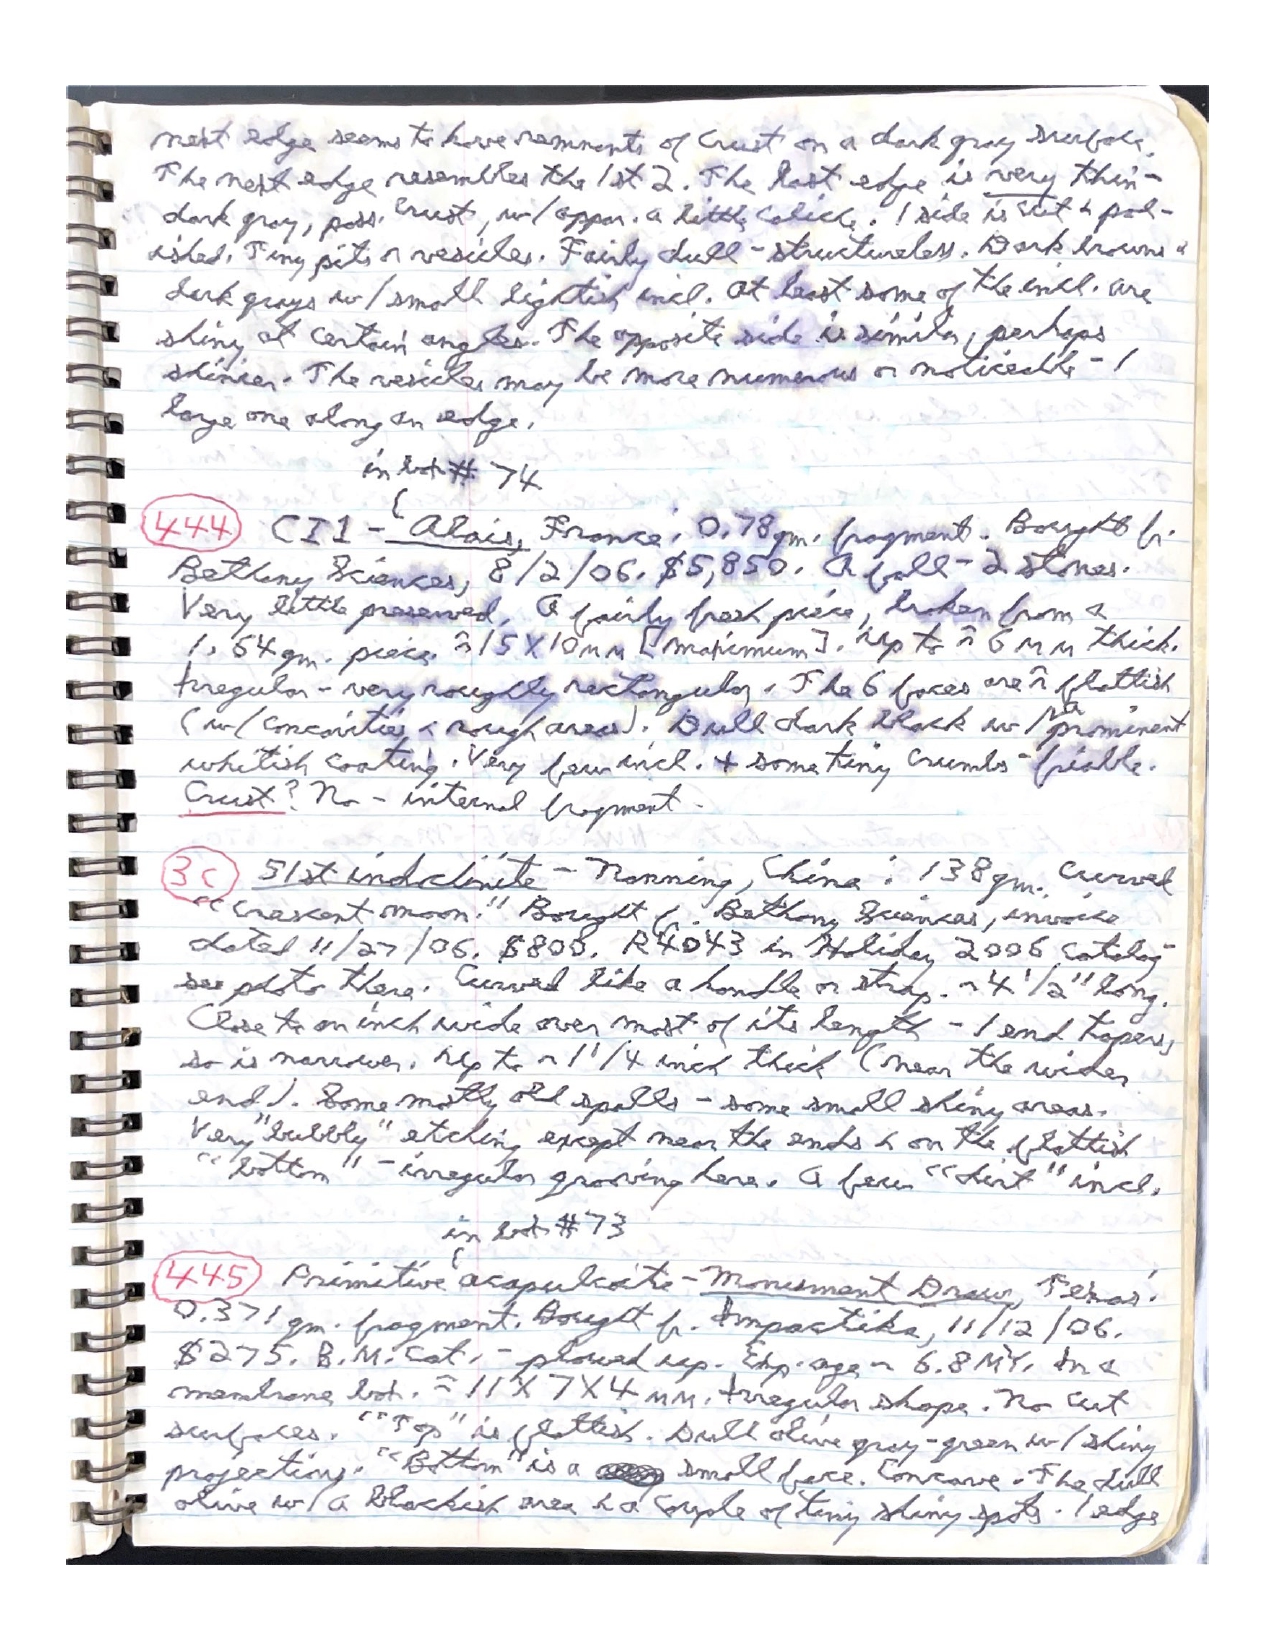 next edge seems to have remnants of crust on a dark gray surface.
The next edge resembles the 1st 2. The last edge is very thin-
dark gray, poss. crust, w/ appar. a little caliche. 1 side is cut & pol-
ished. Tiny pits or vesicles. Fairly dull - structureless. Dark browns &
dark grays w/ small lightish incl. At least some of the incl. are
shiny at certain angles. The opposite side is similar, perhaps
shinier. The vesicles may be more numerous or noticeable - 1
large one along an edge.
in bot. # 74
444 CI1 - Alais, France: 0.78 gm. fragment. Bought fr.
Bethany Sciences, 8/2/06. $5,850. A fall - 2 stones.
Very little preserved. A fairly fresh piece, broken from a
1.64 gm. piece. ≈ 15 X 10 mm [maximum]. Up to ≈ 6 mm thick.
Irregular - very roughly rectangular. The 6 faces are ≈ flattish
(w/ concavities & rough areas). Dull dark black w/ a prominent
whitish coating. Very few incl. & some tiny crumbs - friable.
Crust? No - internal fragment.
3c 51st indochinite - Nanning, China: 138 gm. Curved
"crescent moon." Bought fr. Bethany Sciences, invoice
dated 11/27/06. $800. R4043 in Holiday 2006 catalog -
see photo there. Curved like a handle or strap. ~ 4 1/2" long.
Close to an inch wide over most of its length - 1 end tapers,
so is narrower. Up to ~ 1 1/4 inch thick (near the wider
end). Some mostly old spalls - some small shiny areas.
Very "bubbly" etching except near the ends & on the flattish
"bottom" - irregular grooving here. A few "dirt" incl.
in bot. #73
445 Primitive acapulcoite - Monument Draw, Texas:
0.371 gm. fragment. Bought fr. Impactika, 11/12/06.
$275. B.M. Cat. - plowed up. Exp. age ~ 6.8 MY. In a
membrane bot. ≈ 11 X 7 X 4 mm. Irregular shape. No cut
surfaces. "Top" is flattish. Dull olive gray-green w/ shiny
projections. "Bottom" is a small face. Concave. The dull
olive w/ a blackish area & a couple of tiny shiny spots. 1 edge